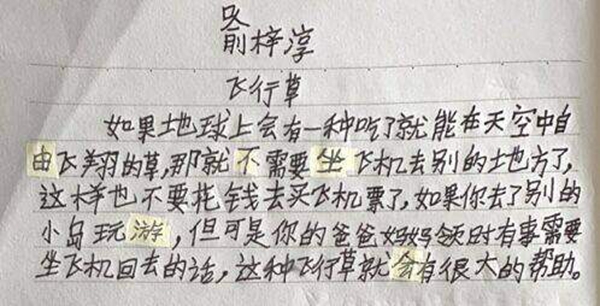 喻梓淳
飞行草
如果地球上会有一种吃了就能在天空中自
由飞翔的草,那就不需要坐飞机去别的地方了,
这样也不要花钱去买飞机票了,如果你去了别的
小岛玩游,但可是你的爸爸妈妈临时有事需要
坐飞机回去的话,这种飞行草就会有很大的帮助。